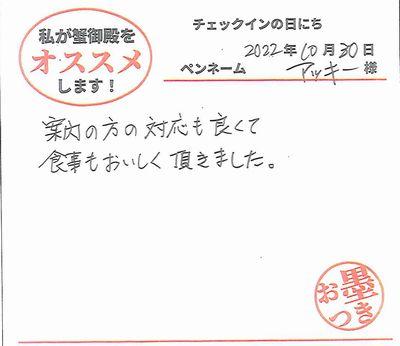 私が蟹御殿を
オススメ
します！
チェックインの日にち
2022年10月30日
ペンネーム アッキー 様
案内の方の対応も良くて
食事もおいしく頂きました。
お墨
つき